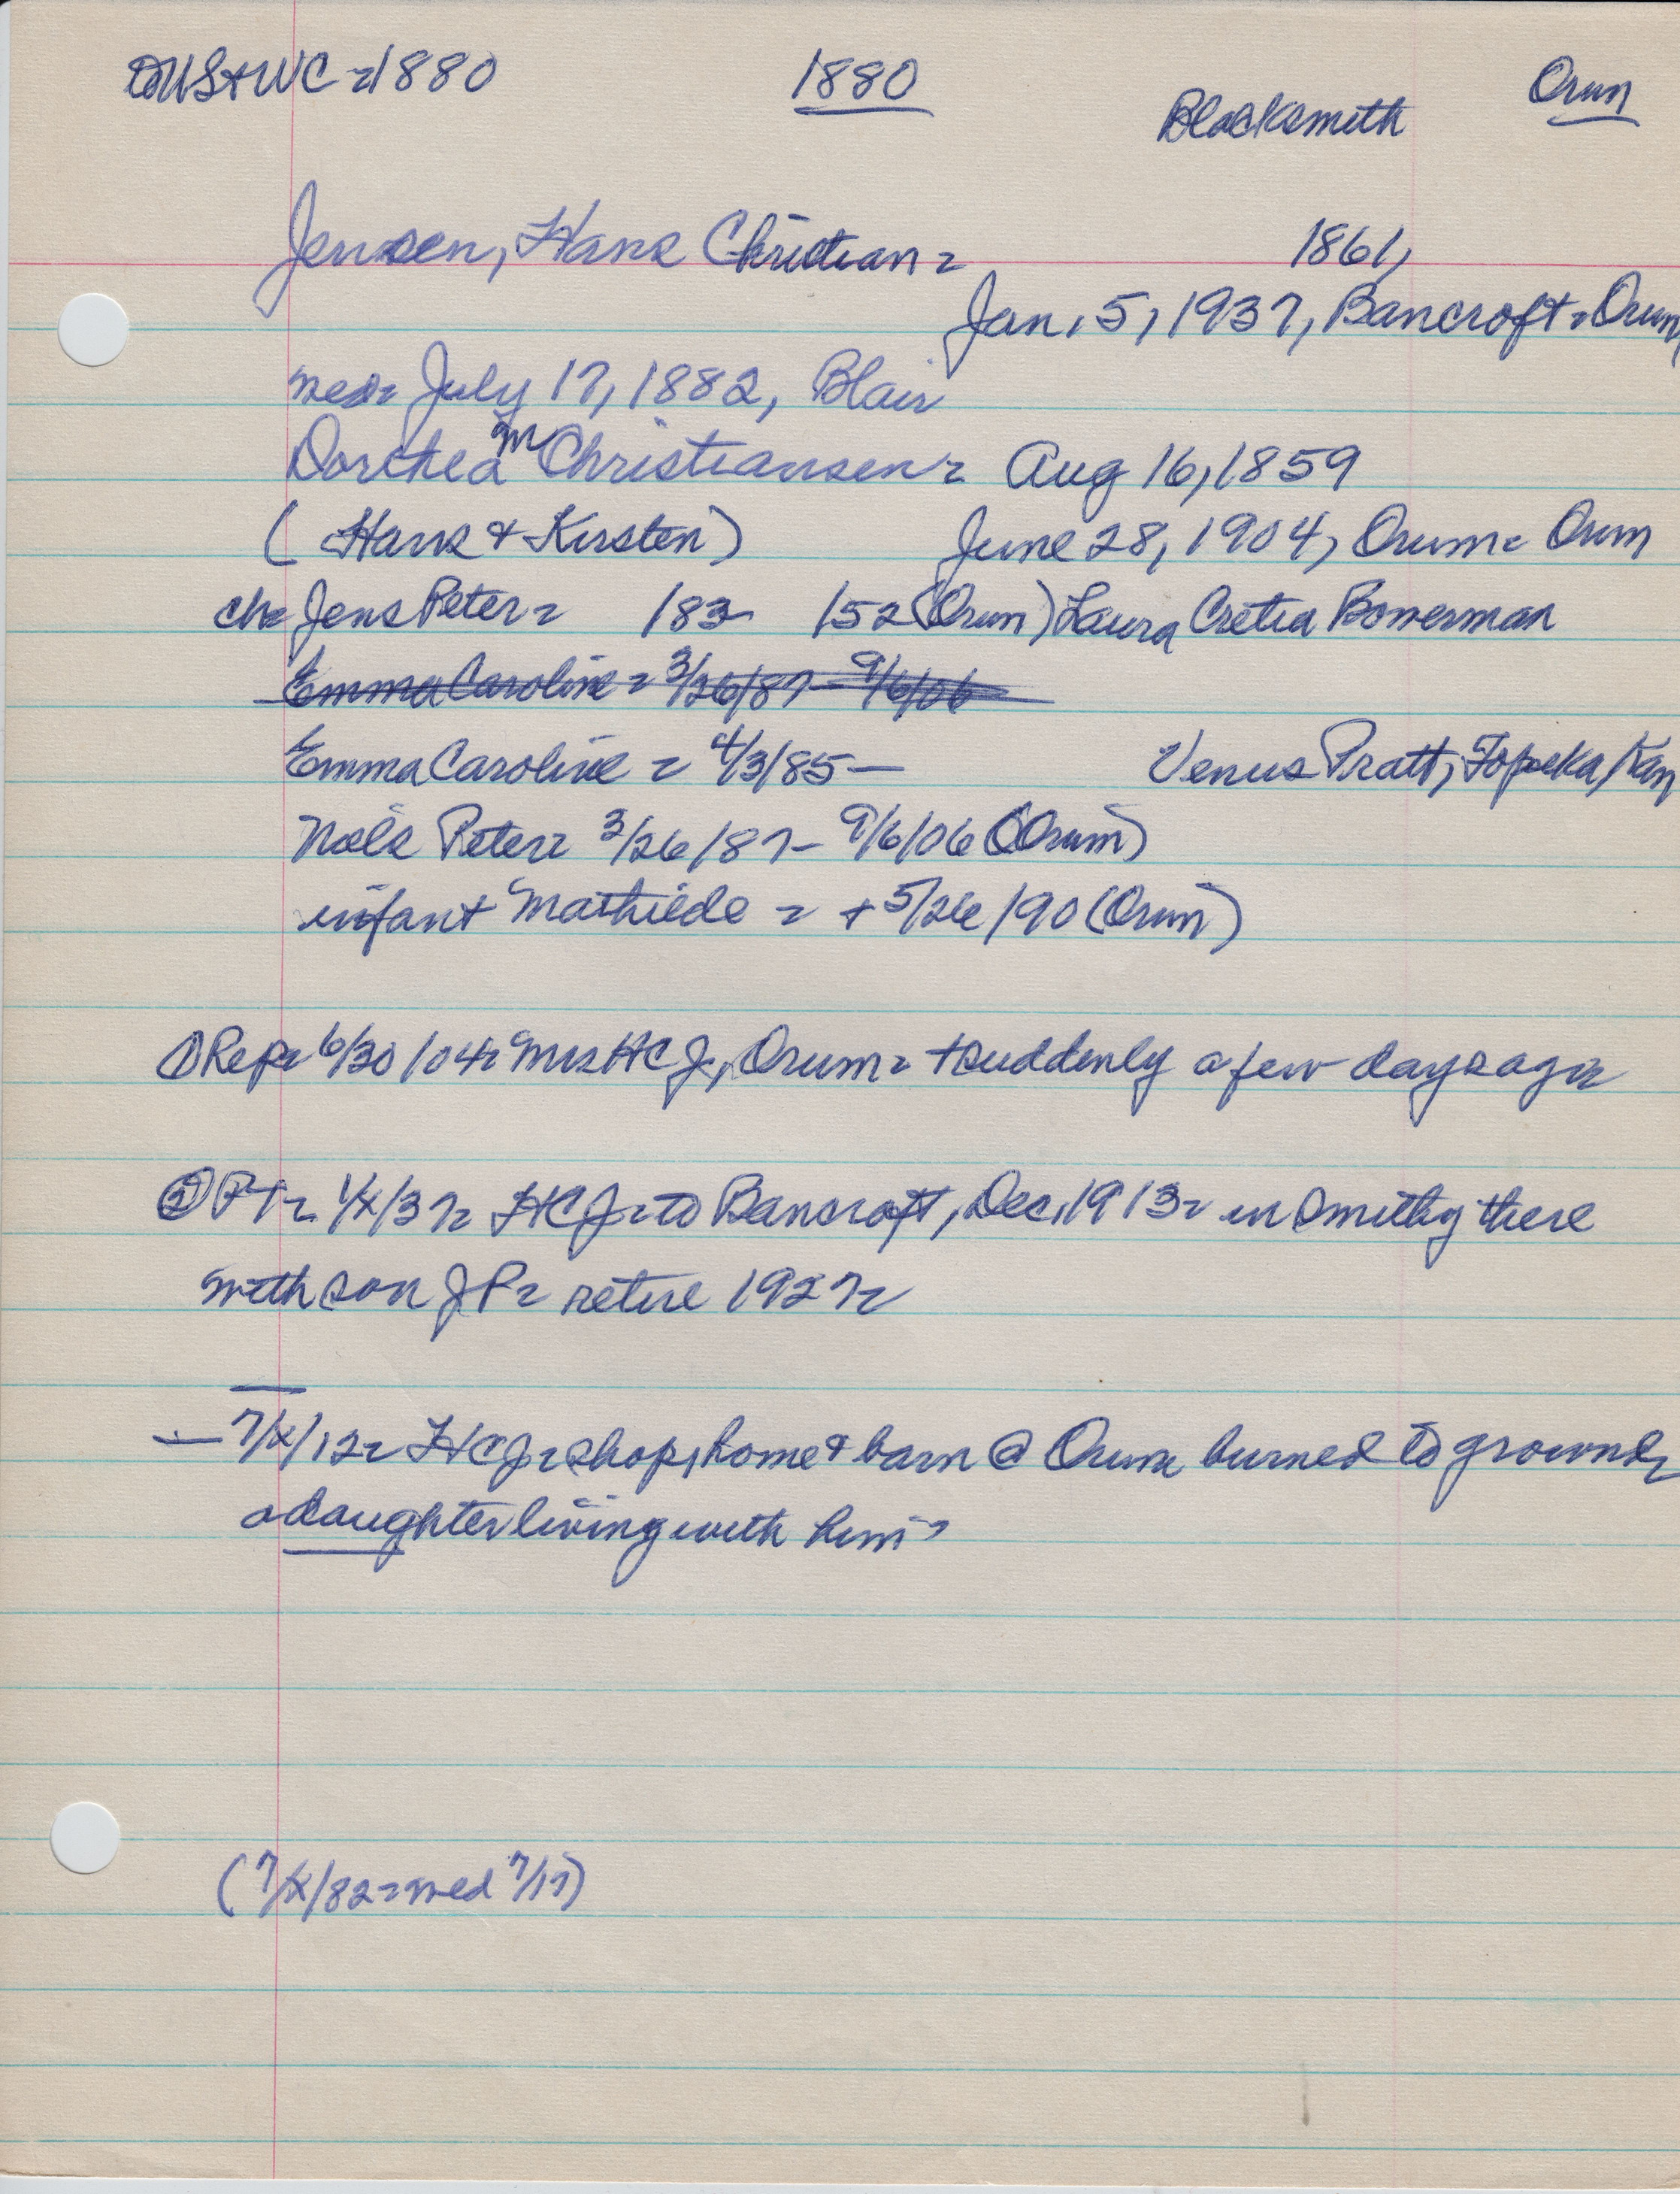 US+WC = 1880 1880 Blacksmith Orum
Jensen, Hans Christian = 1861,
Jan. 5, 1937, Bancroft = Orum
wed = July 17, 1882, Blair
Dorthea M Christiansen = Aug 16, 1859
( Hans + Kirsten) June 28, 1904, Orum = Orum
ch= Jens Peter = /83- /52 (Orum) Laura Cretia Bowerman
Emma Caroline = 3/26/87 - 9/6/06
Emma Caroline = 4/3/85 — Venus Pratt, Topeka, Kan
Nels Peter = 3/26/87 - 9/6/06 (Orum)
infant Mathilde = +5/26/90 (Orum)
① Rep = 6/30/04 = Mrs HCJ, Orum = +suddenly a few days ago =
② PT = 1/x/37 = HCJ = to Bancroft, Dec, 1913 = in smithy there
with son JP = retire 1927 =
— 7/x/12 = HCJ = shop, home + barn @ Orum burned to ground =
a daughter living with him =
(7/x/82 = wed 7/17)